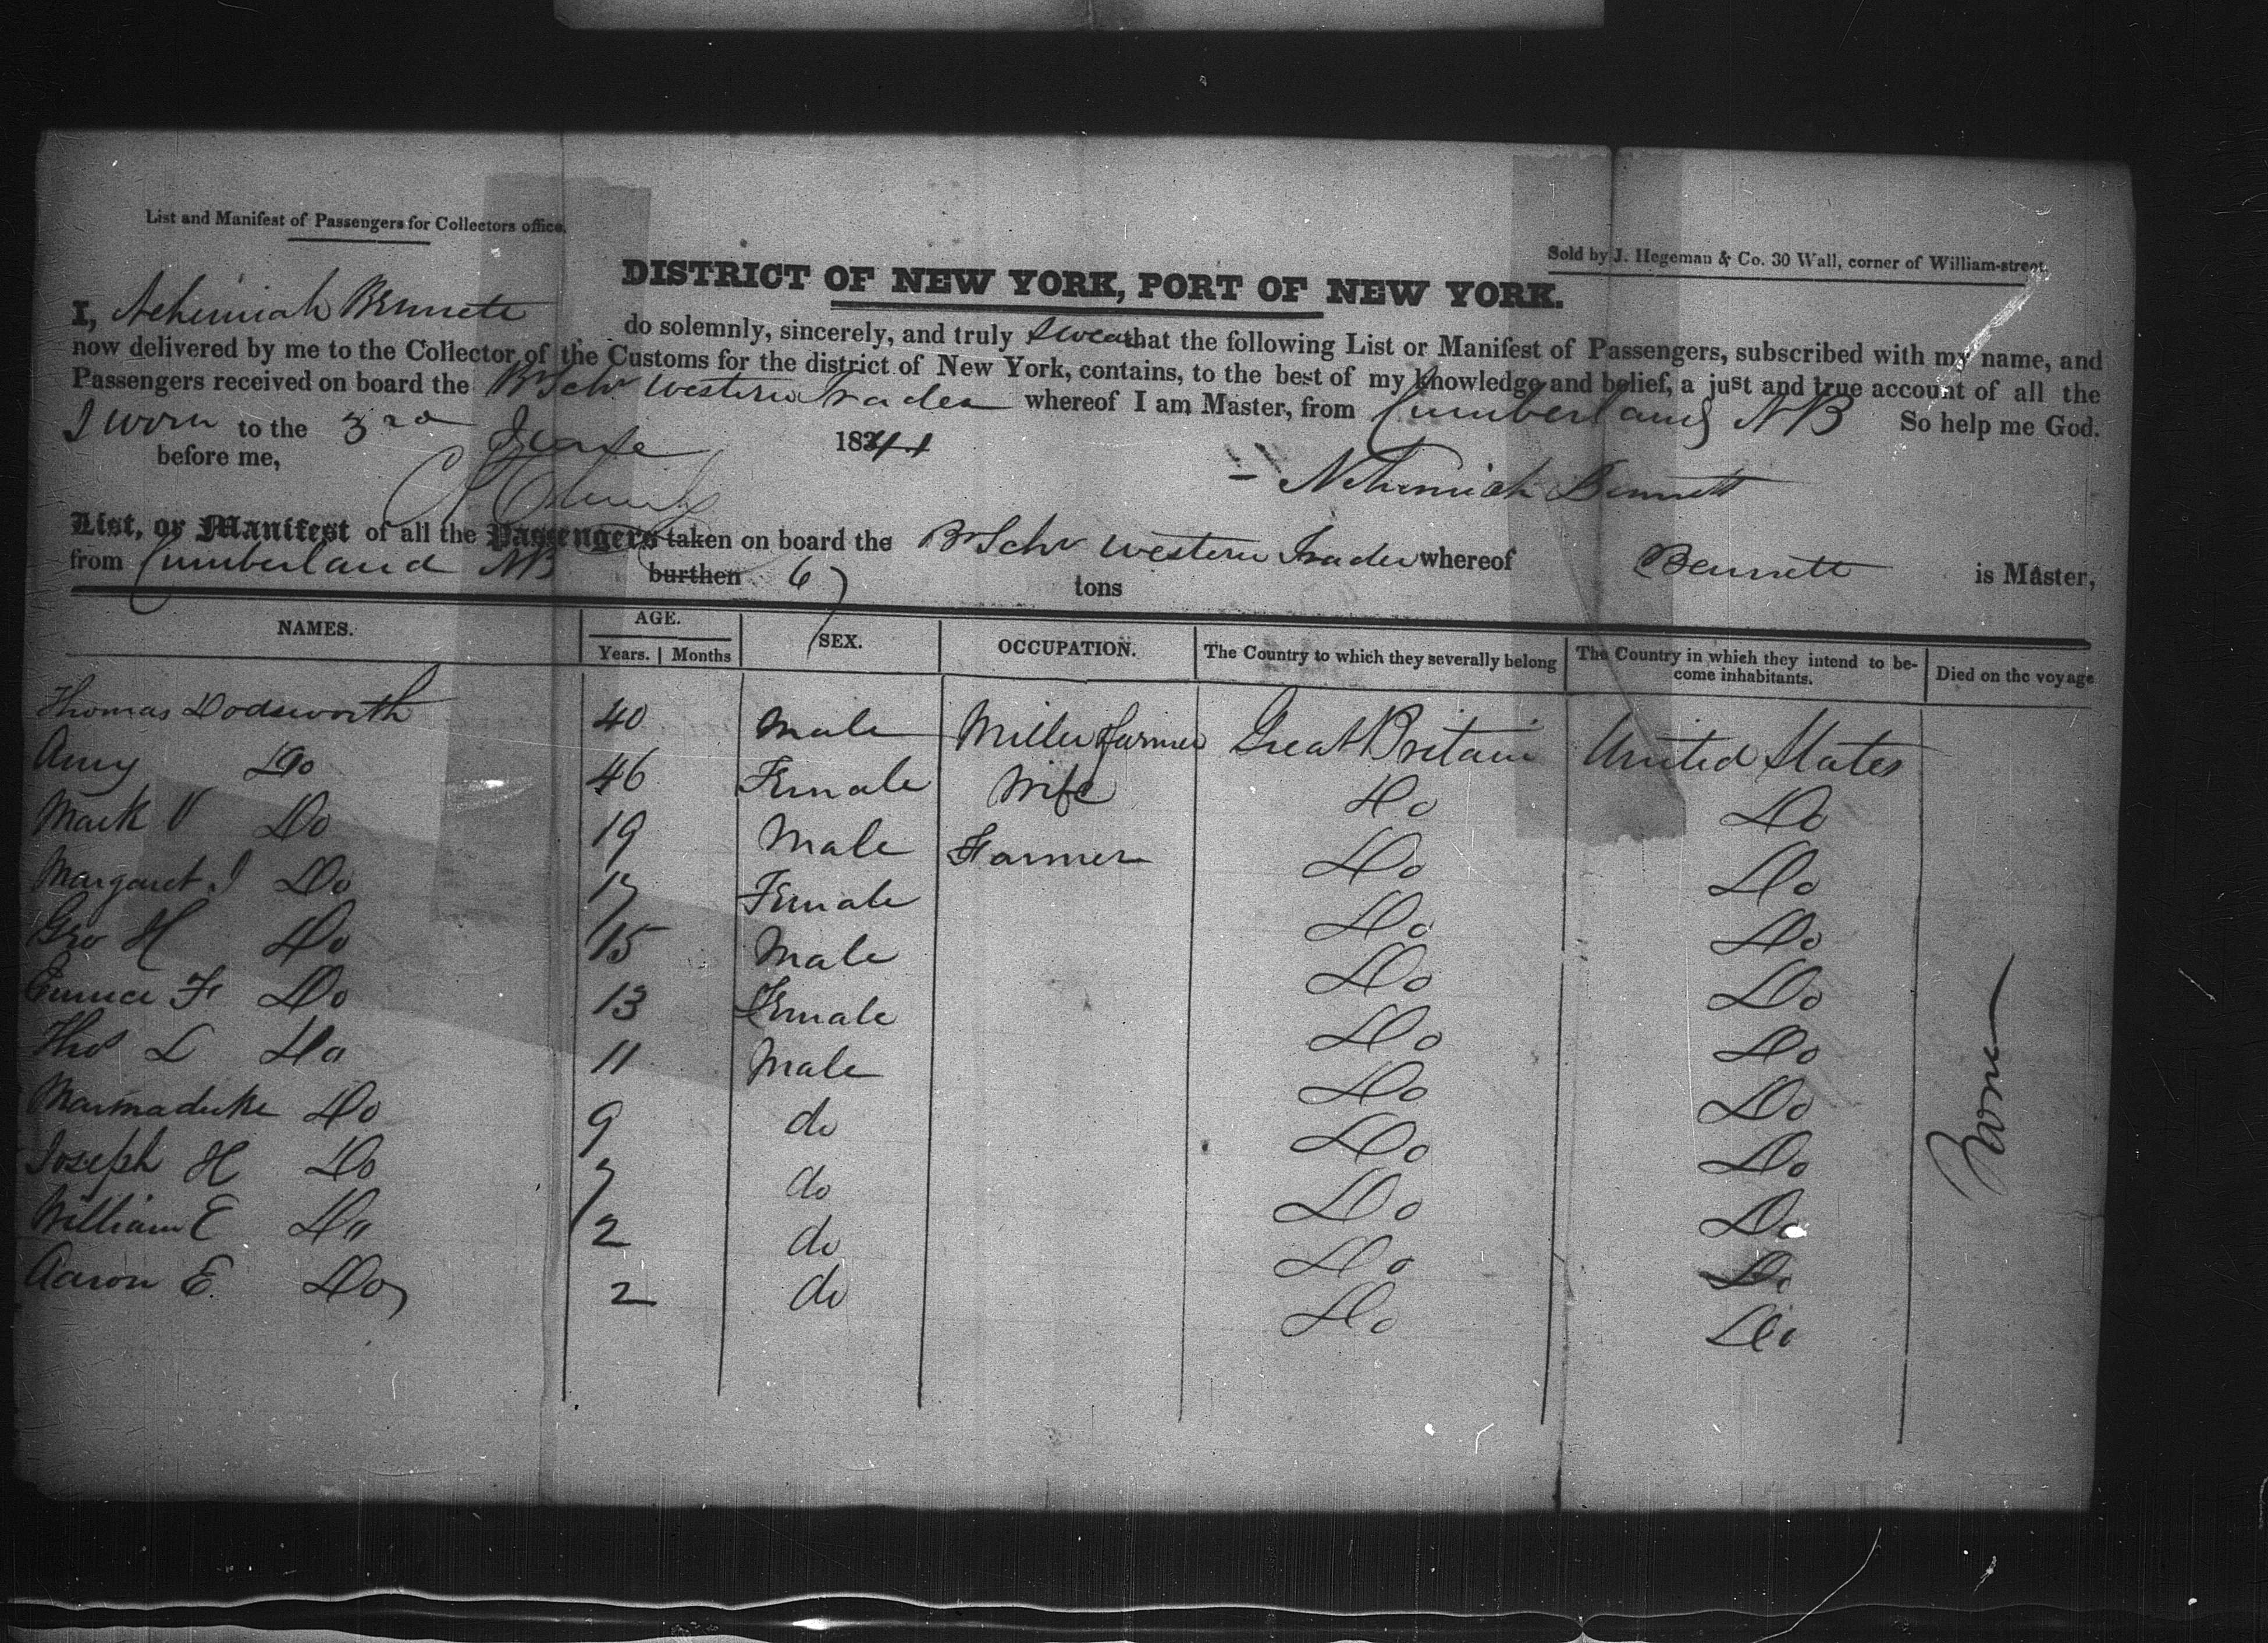 List and Manifest of Passengers for Collectors office.
Sold by J. Hegeman & Co. 30 Wall, corner of William-street.
DISTRICT OF NEW YORK, PORT OF NEW YORK.
I, Nehemiah Bennett do solemnly, sincerely, and truly swear that the following List or Manifest of Passengers, subscribed with my name, and
now delivered by me to the Collector of the Customs for the district of New York, contains, to the best of my knowledge and belief, a just and true account of all the
Passengers received on board the Br Schr Western Trader whereof I am Master, from Cumberland NB So help me God.
Sworn to the 3rd 1841
before me,
Nehemiah Bennett
List, or Manifest of all the Passengers taken on board the Br Schr Western Trader whereof Bennett is Master,
from Cumberland NB burthen 67 tons
NAMES. AGE. Years. Months SEX. OCCUPATION. The Country to which they severally belong The Country in which they intend to become inhabitants. Died on the voyage
Thomas Dodsworth 40 Male Miller farmer Great Britain United States
Amy Do 46 Female Wife Do Do
Mark V Do 19 Male Farmer Do Do
Margaret J Do 17 Female Do Do
Geo H Do 15 Male Do Do
Eunice F Do 13 Female Do Do
Thos L Do 11 Male Do Do
Marmaduke Do 9 do Do Do
Joseph H Do 7 do Do Do
William E Do 2 do Do Do
Aaron E. Do 2 do Do Do
None